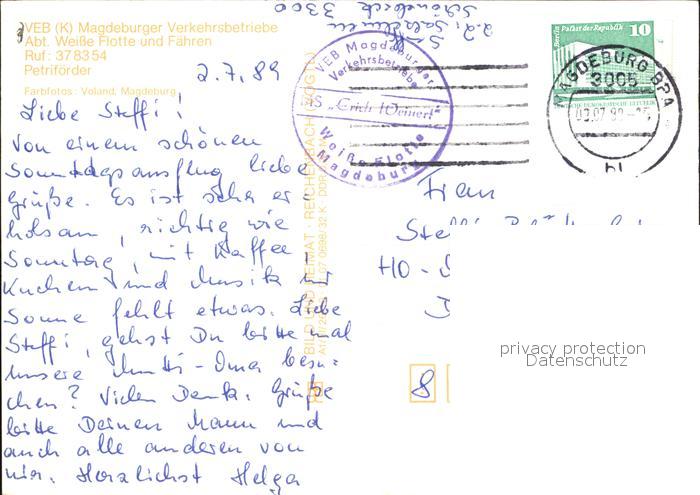 VEB (K) Magdeburger Verkehrsbetriebe
Abt. Weiße Flotte und Fähren
Ruf: 37 83 54
Petriförder
Farbfotos: Voland, Magdeburg
2.7.89
Liebe Steffi!
Von einem schönen
Sonntagsausflug liebe
Grüße. Es ist sehr er-
holsam, richtig wie
Sonntag, mit Kaffee
Kuchen und Musik nur
Sonne fehlt etwas. Liebe
Steffi, gehst Du bitte mal
unsere Mutti-Oma besu-
chen? Vielen Dank. Grüße
bitte Deinen Mann und
auch alle anderen von
mir. Herzlichst Helga
Schönebeck 3300
VEB Magdeburger
Verkehrsbetriebe
MS "Erich Weinert"
Weiße Flotte
Magdeburg
BILD UND HEIMAT · REICHENBACH (VOGTL)
Berlin, Palast der Republik
10
DEUTSCHE DEMOKRATISCHE REPUBLIK
MAGDEBURG BPA
3005
bl
Frau
HO -
8
privacy protection
Datenschutz